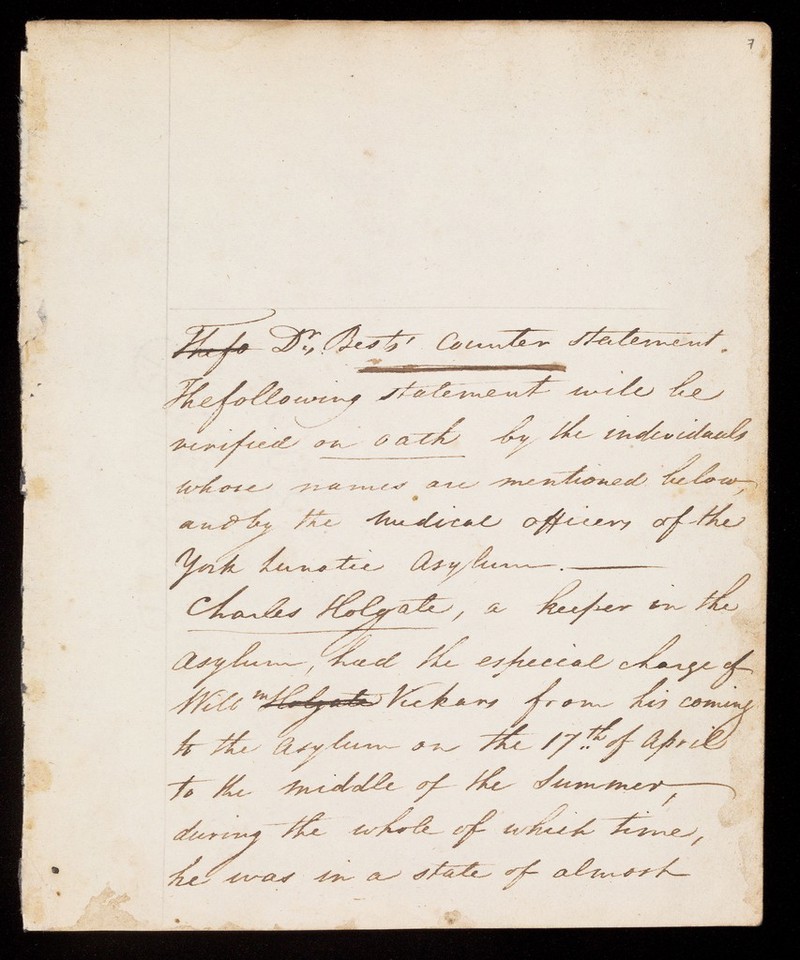 7
Thefo Dr. Bests' Counter statement.
Thefollowing statement will be
verified on oath by the individuals
whose names are mentioned below,
and by the Medical officers of the
York Lunatic Asylum. —
Charles Holgate, a keeper in the
Asylum, had the especial charge of
Willm Holgate Vickars from his coming
to the Asylum on the 17th of April
to the middle of the Summer,
during the whole of which time,
he was in a state of almost